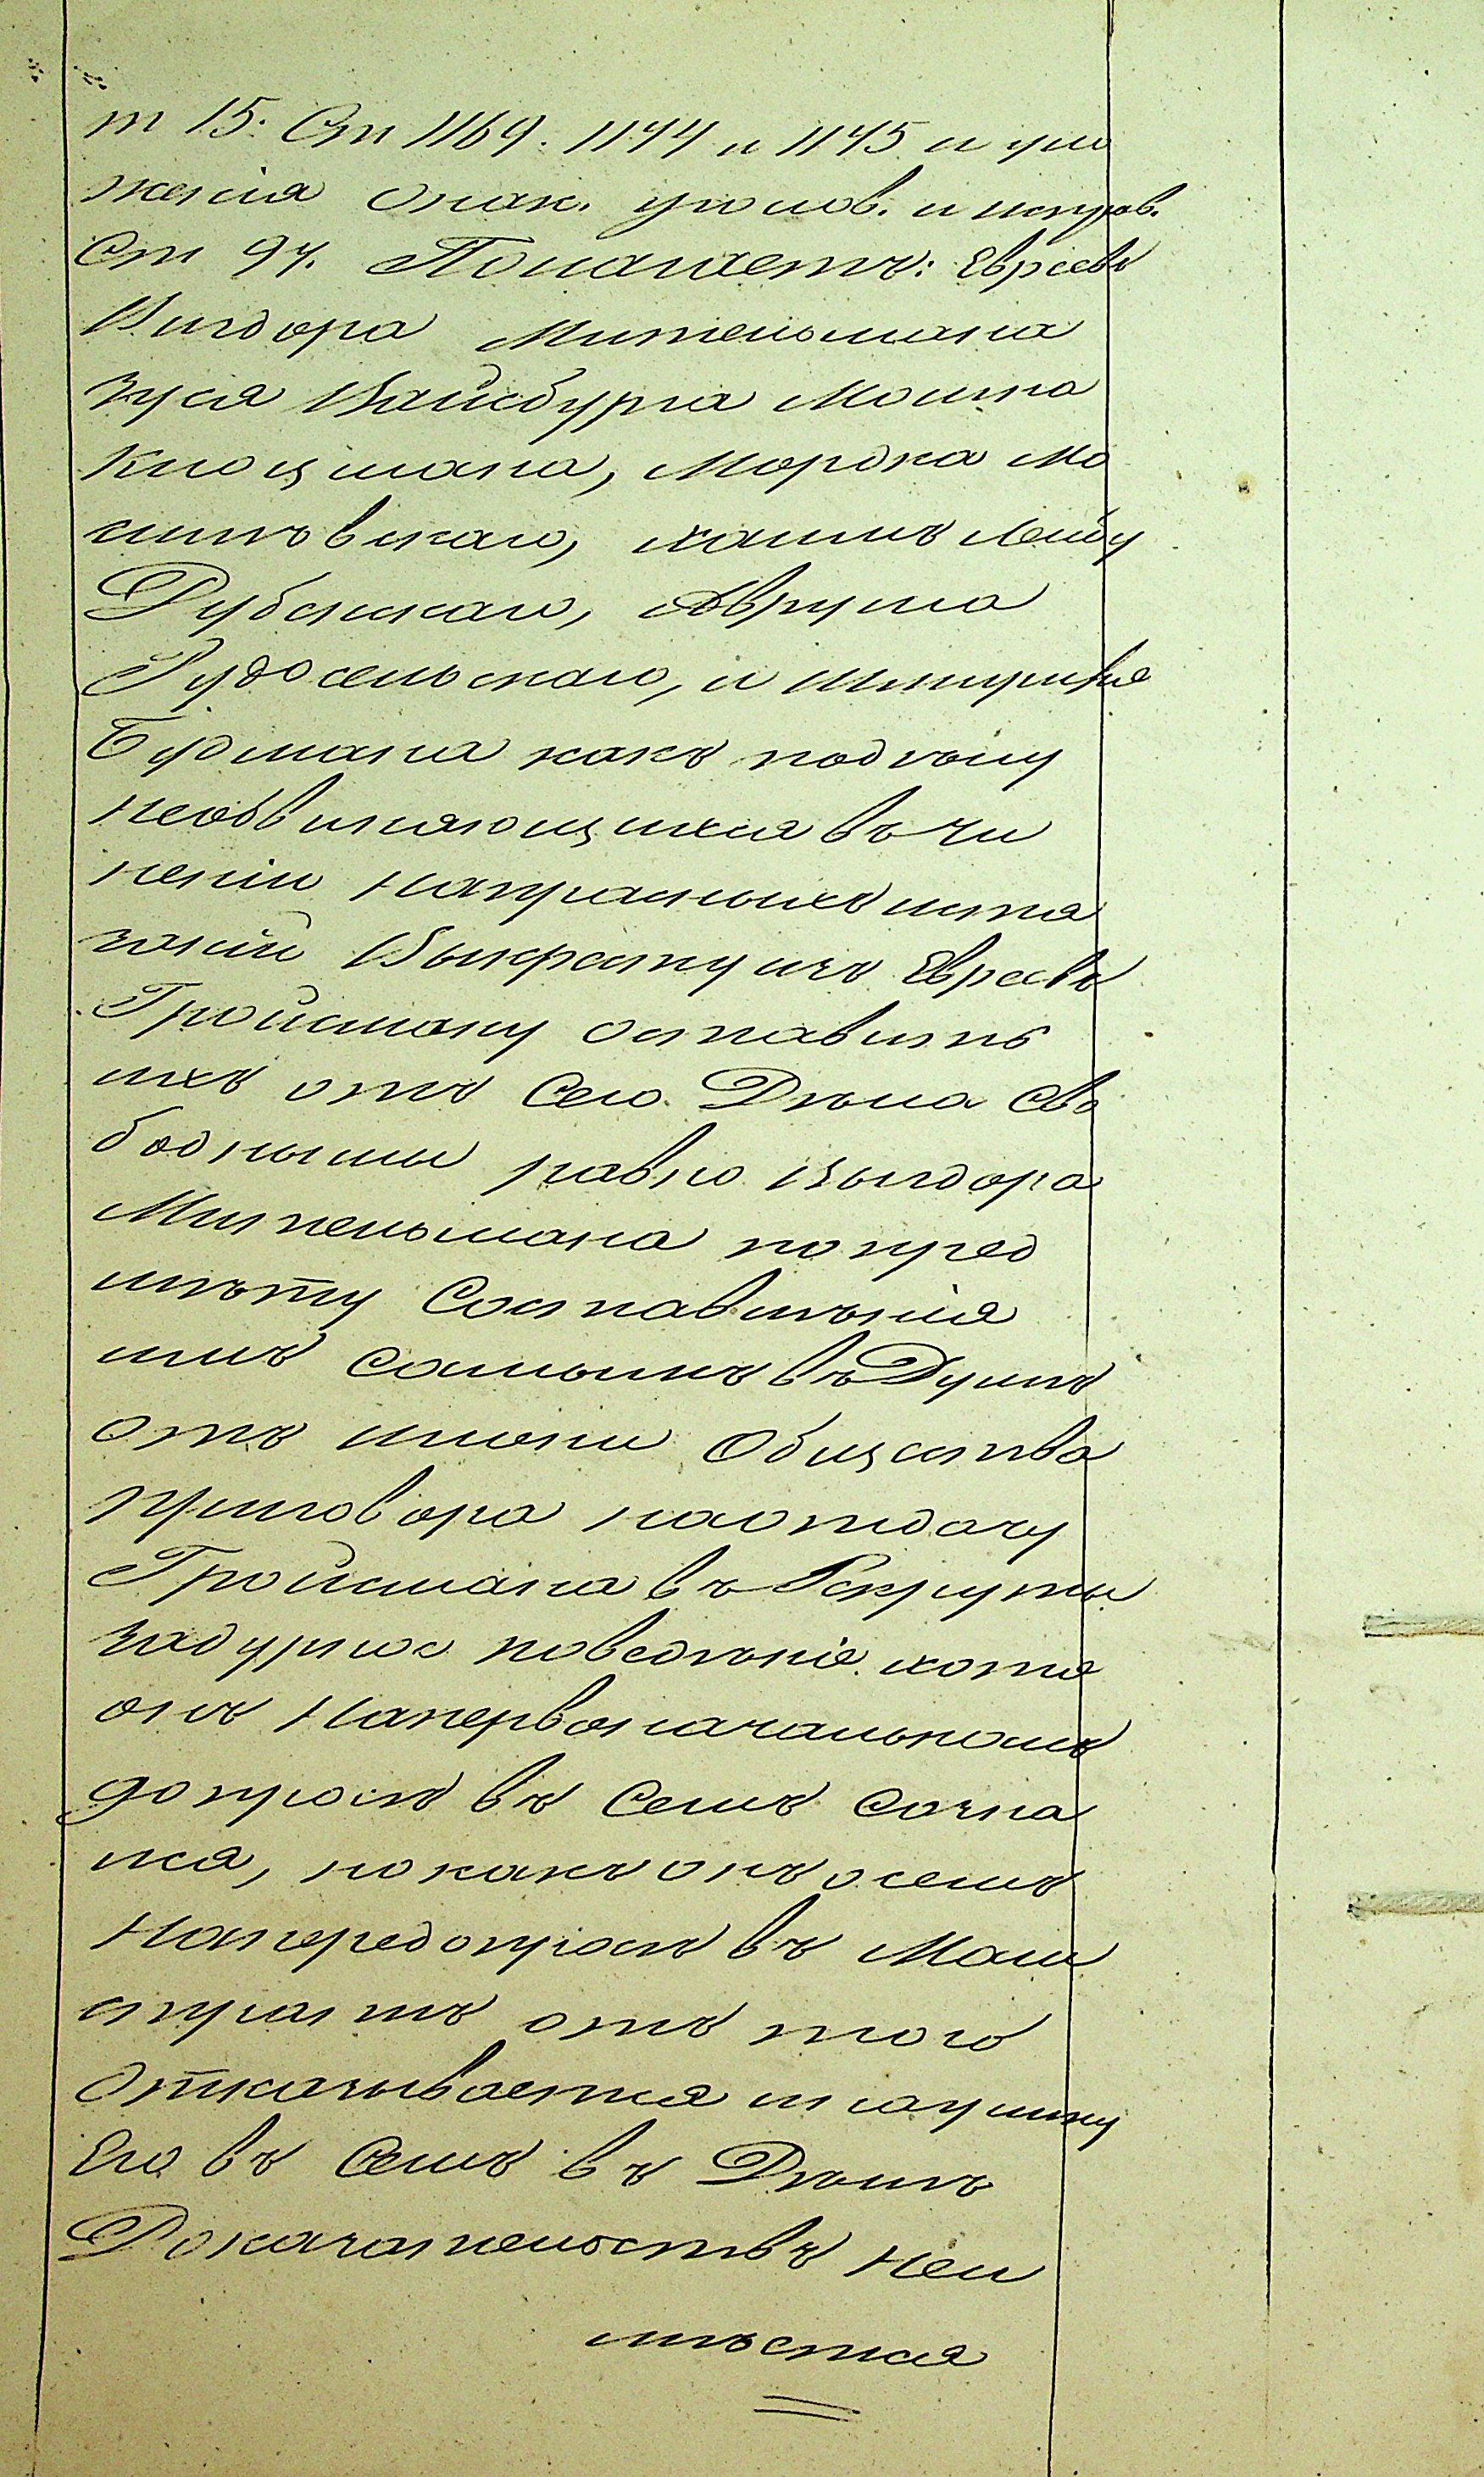 т 15. Ст 1169. 1144 и 1145 и уло
женія онак. уголов. и испров.
Ст 97. Полагаетъ: Евреевъ
Вигдора Мительмана
Зуся Вайсбурга Мошка
Клоцмана, Мордка Мо
шловскаго, Хаимъ Лейбу
Дубенскаго, Аврума
Рудосельскаго, и Шмиръ
Будмана какъ подълу
необвиняющихся въ чи
неніи напрасныхъ истя
заній Выкресту изъ Евреевъ
Гройсману оставить
ихъ отъ Сего Дѣла сво
бодными равно Выгдора
Мительмана по пред
мѣту Составлѣнія
имъ самымъ въ Думѣ
отъ имени Общества
приговора наотдачу
Гройсмана въ Рекруты
задурное поведѣніе хотя
онъ Напервоначальномъ
допросѣ въ Семъ Созна
лся, но какъ онъ осемъ
Напередопросѣ въ Маги
стратѣ отъ того
Отказывается и саулику
Его въ Семъ въ Дѣлѣ
Доказательствъ Неи
мѣется